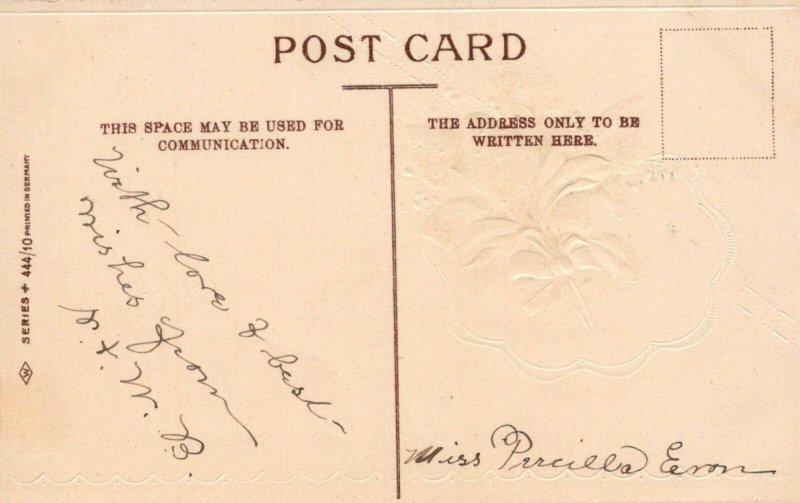 POST CARD
THIS SPACE MAY BE USED FOR
COMMUNICATION.
THE ADDRESS ONLY TO BE
WRITTEN HERE.
SERIES + 444/10 PRINTED IN GERMANY
W
With love & best
wishes from
W. B.
Miss Percilla Evon